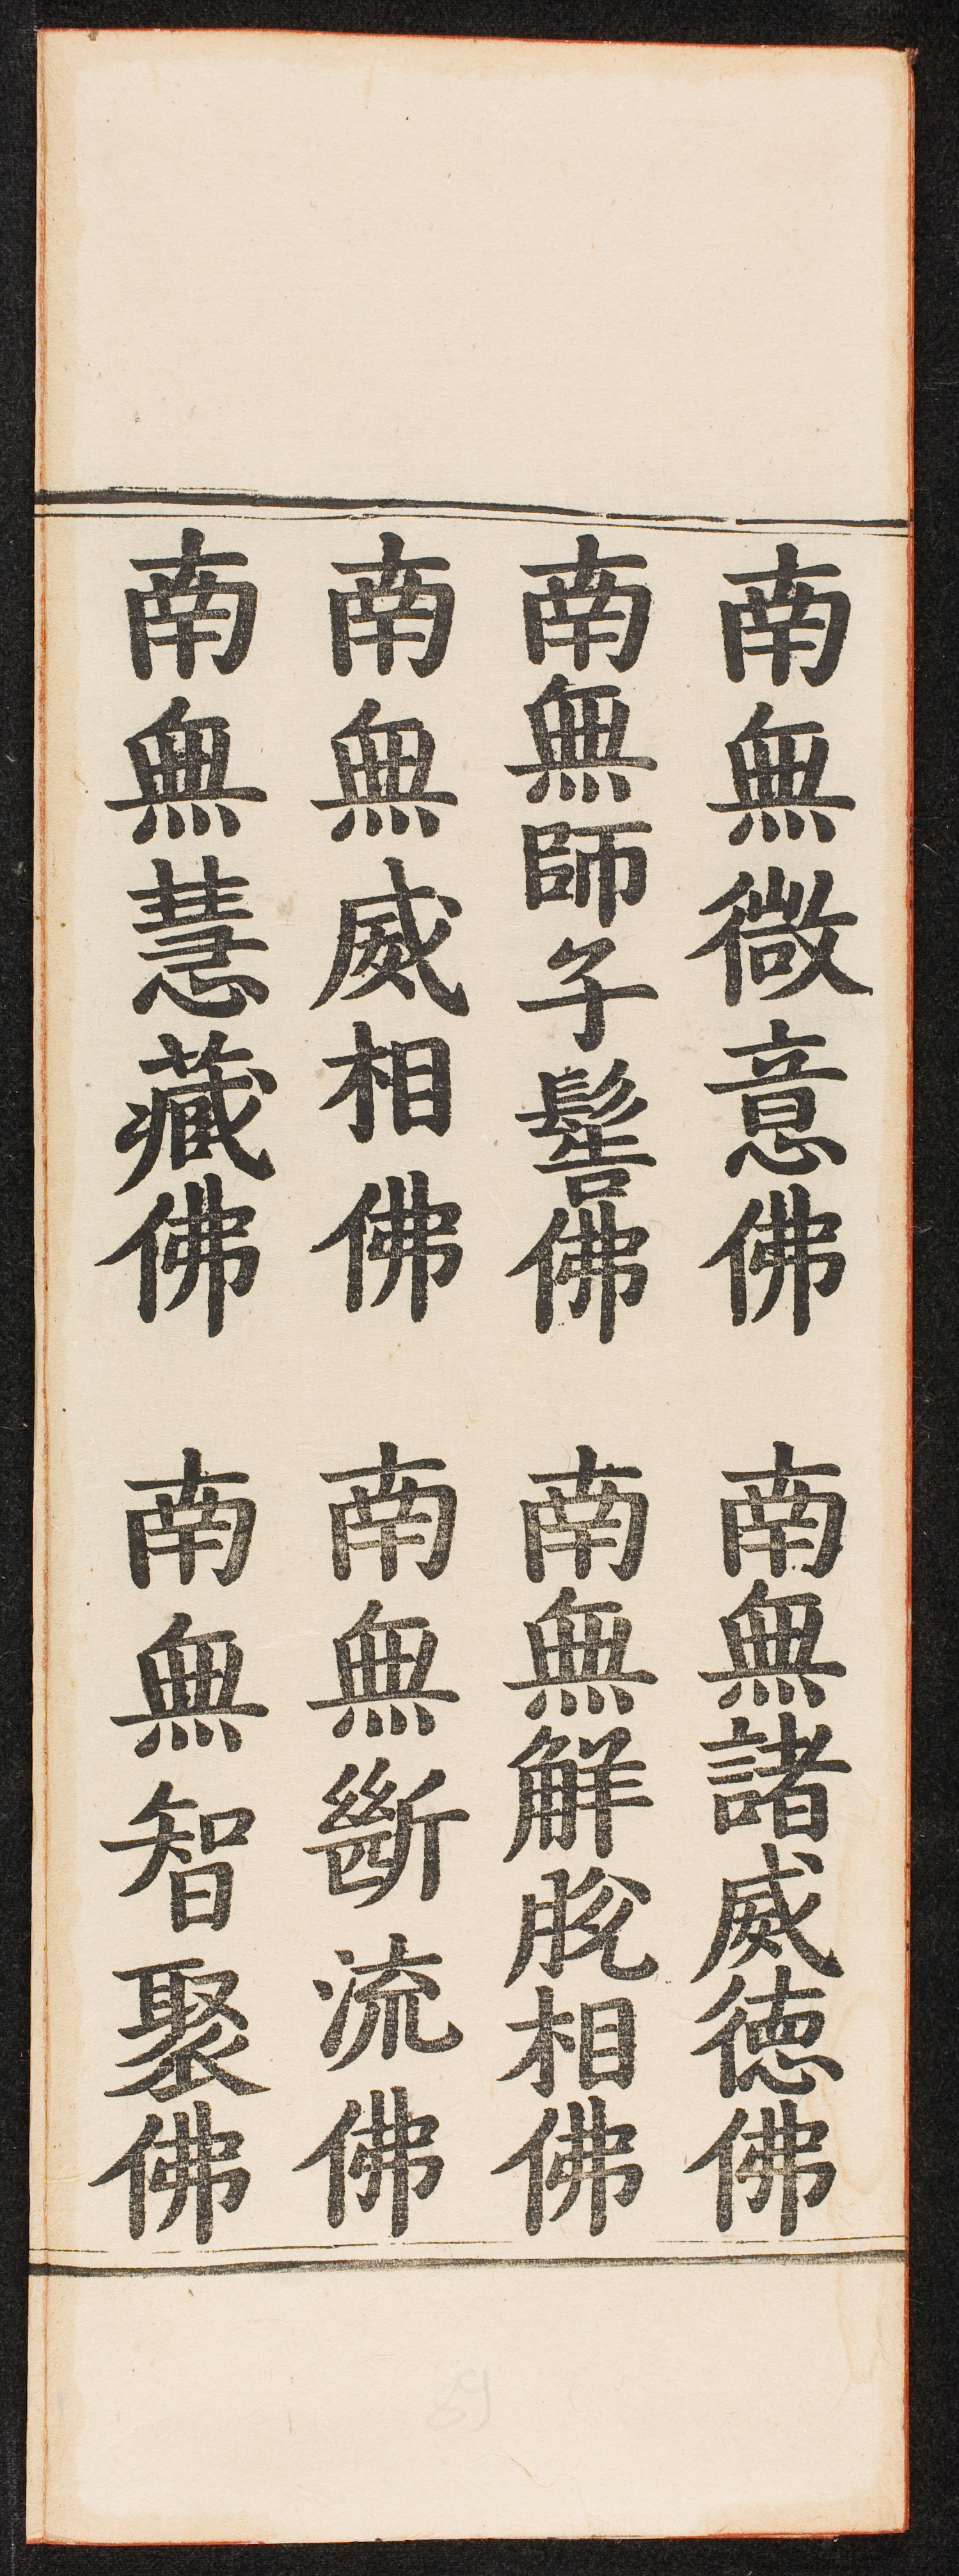 南無微意佛　南無諸威德佛
南無師子髻佛　南無解脫相佛
南無威相佛　南無斷流佛
南無慧藏佛　南無智聚佛